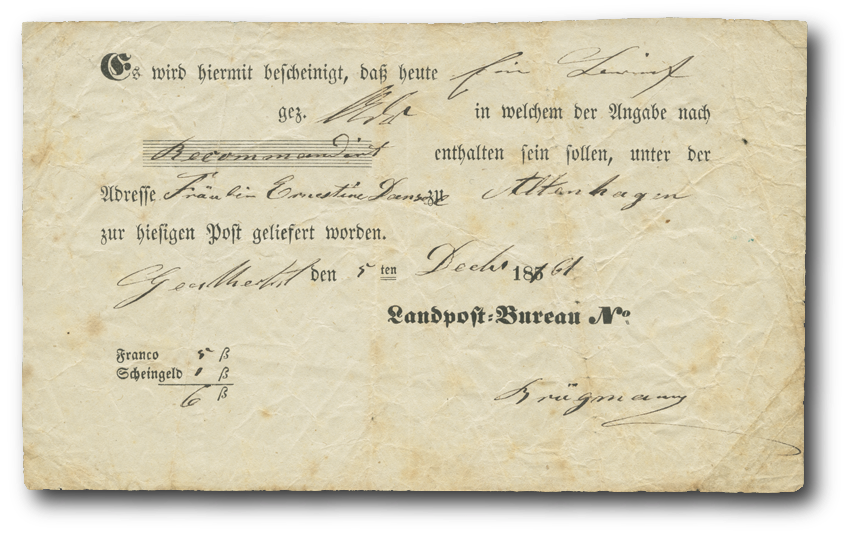 Es wird hiermit bescheinigt, daß heute Ein
gez. in welchem der Angabe nach
Recommandirt enthalten sein sollen, unter der
Adresse Fräulein Ernestine zu Altenhagen
zur hiesigen Post geliefert worden.
den 5 ten Decbr 1861
Landpost-Bureau No.
Franco 5 ß
Scheingeld 1 ß
6 ß
Brügmann